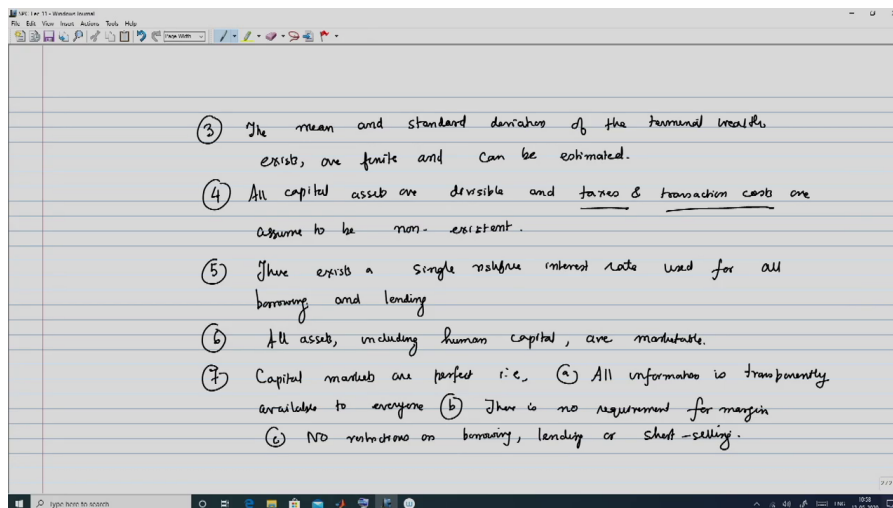 SPC Lec 11 - Windows Journal
File Edit View Insert Actions Tools Help
Page Width
③ The mean and standard deviation of the terminal wealth
exists, are finite and can be estimated.
④ All capital assets are divisible and taxes & transaction costs are
assume to be non-existent.
⑤ There exists a single riskfree interest rate used for all
borrowing and lending
⑥ All assets, including human capital, are marketable.
⑦ Capital markets are perfect i.e, ⓐ All information is transparently
available to everyone ⓑ There is no requirement for margin
ⓒ No restrictions on borrowing, lending or short-selling.
2/2
Type here to search
ENG
10:58